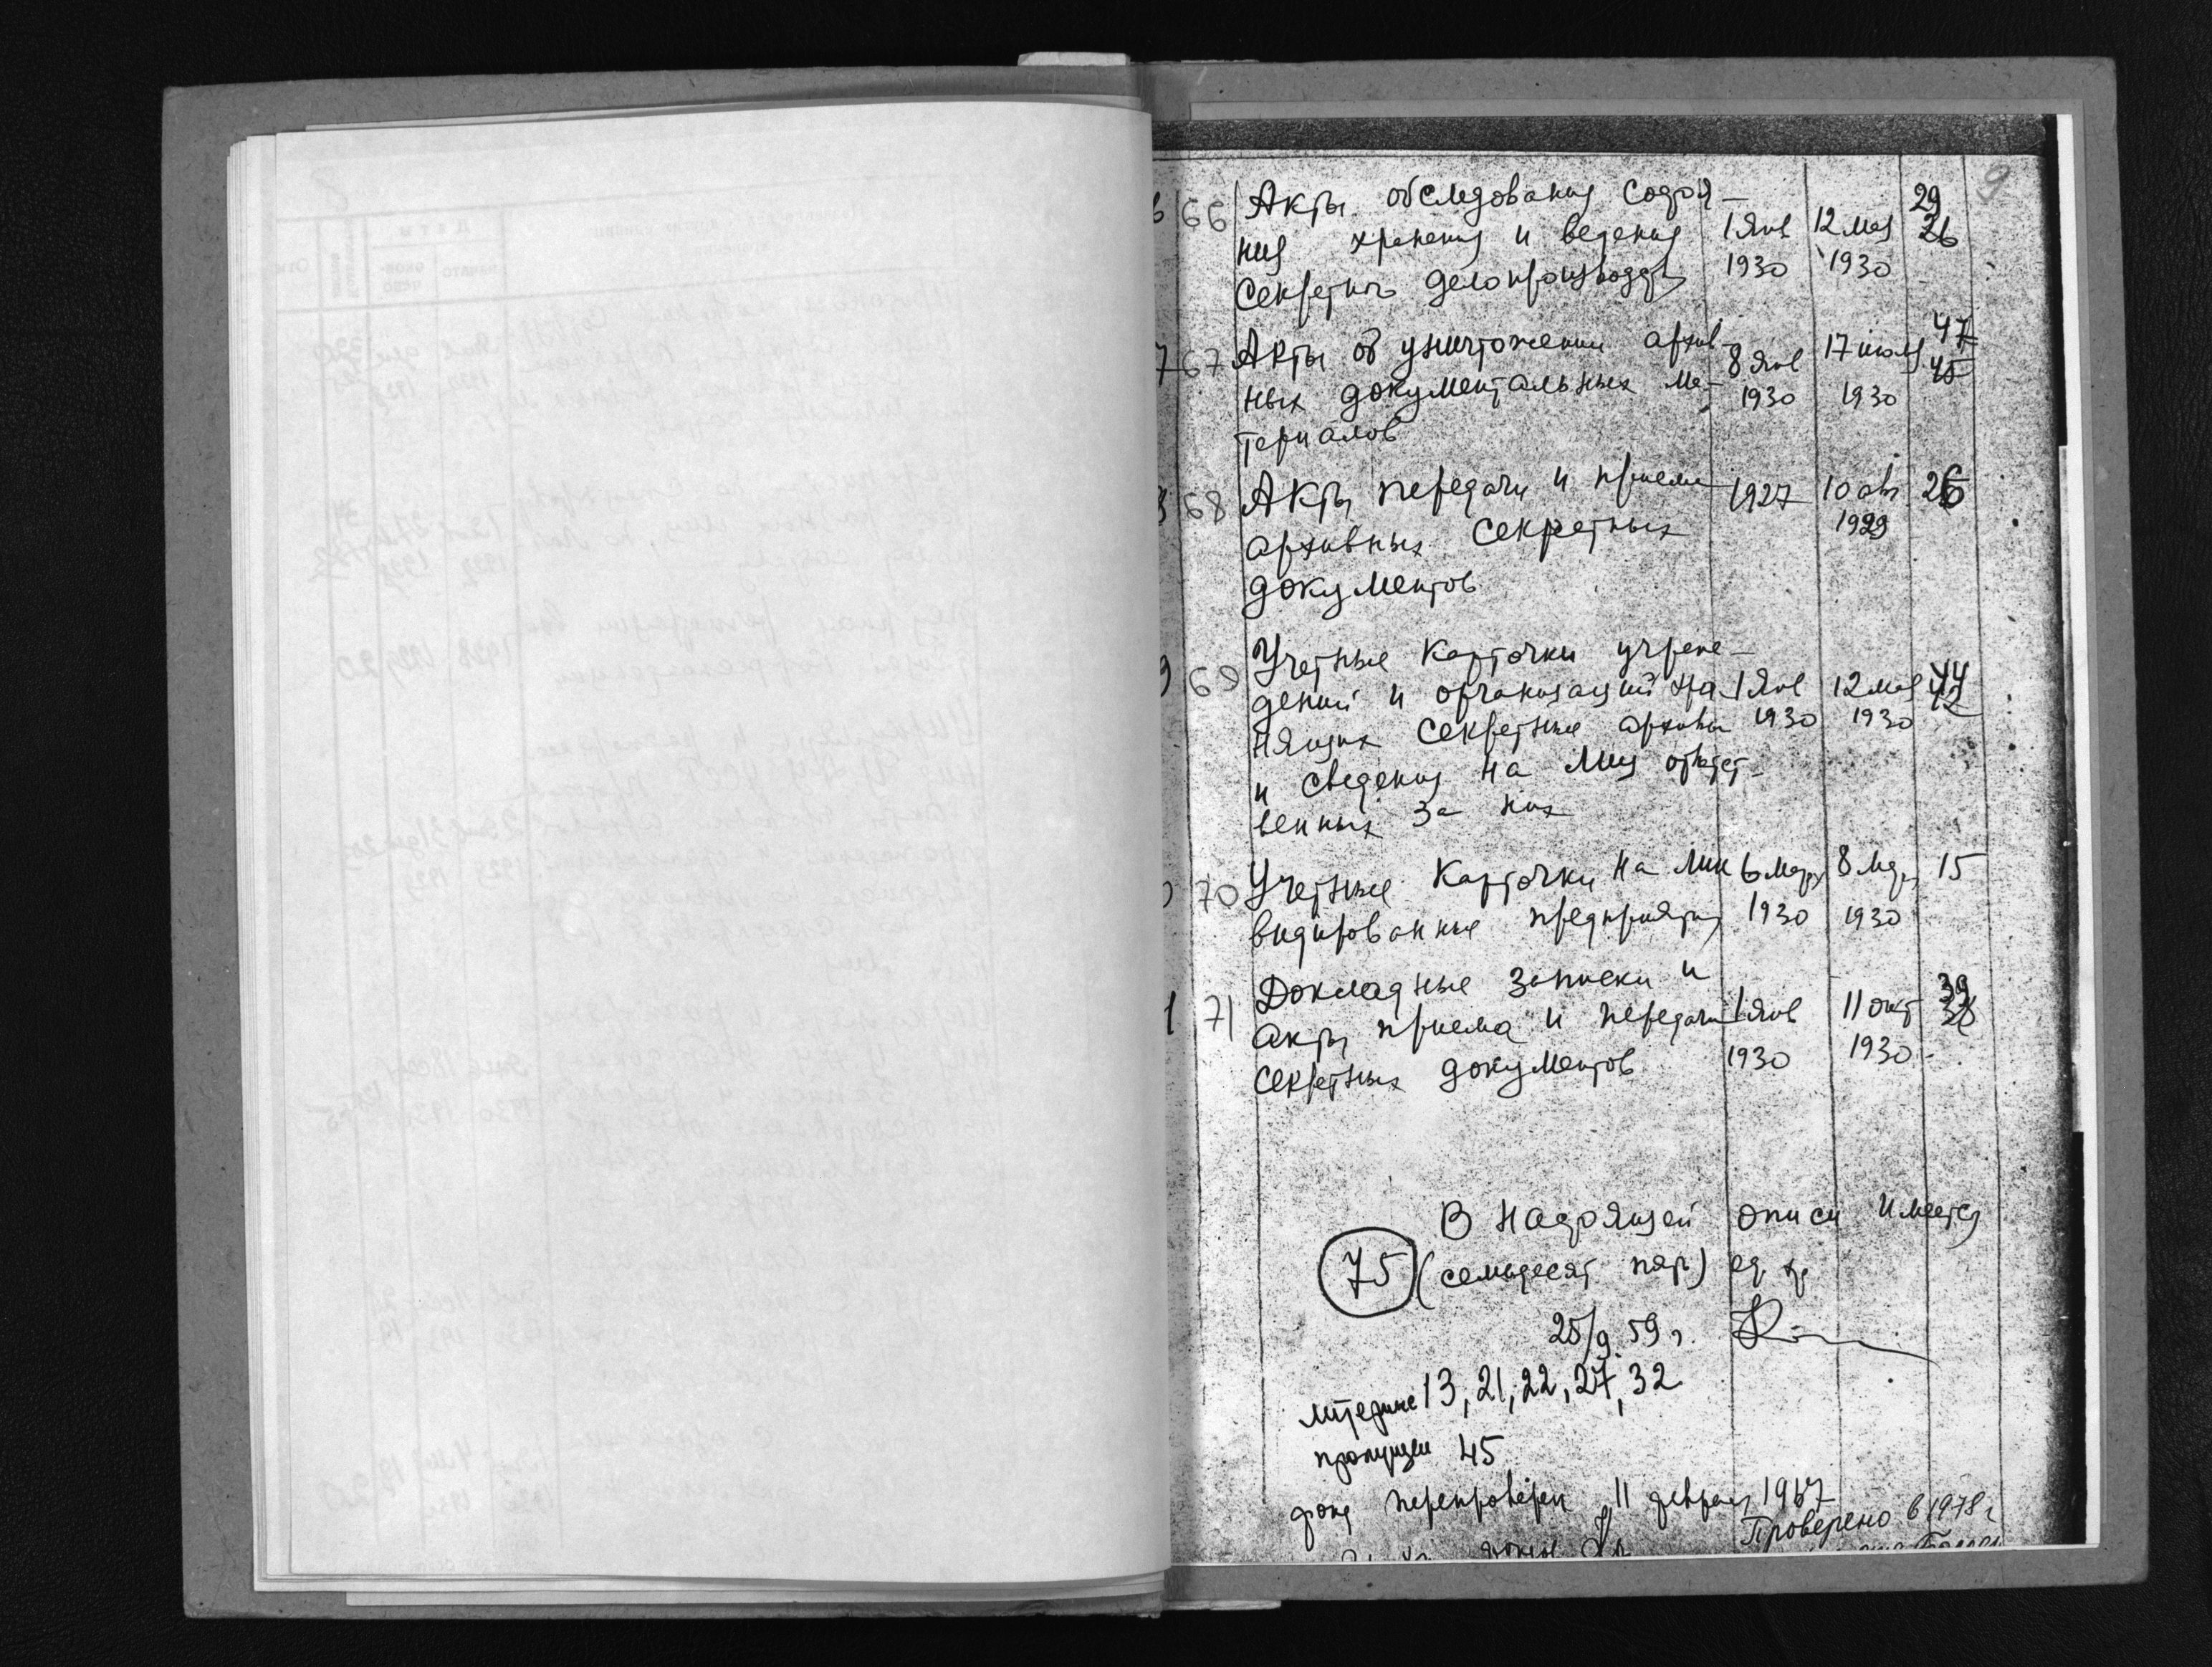 9
66 Акты обследования состоя-
ния хранения и ведения 1 янв 12 мая 29 26
секретного делопроизводств 1930 1930
67 Акты об уничтожении архив- 8 янв 17 июля 47 45
ных документальных ма- 1930 1930
териалов
68 Акты передачи и приема 1927 10 окт 26
архивных секретных 1929
документов
69 Учетные карточки учреж-
дений и организаций хра- 1 янв 12 мая 44 42
нящих секретные архивы 1930 1930
и сведения на лиц ответст-
венных за них
70 Учетные карточки на лик 6 март 8 мар 15
видированные предприятия 1930 1930
71 Докладные записки и
акты приема и передачи 1 янв 11 окт 39 38
секретных документов 1930 1930
В настоящей описи имеется
75 (семьдесят пять) ед хр
25/9. 59 г.
литерные 13, 21, 22, 27, 32
пропущен 45
фонд перепроверен 11 февраля 1967
Проверено в 1978 г